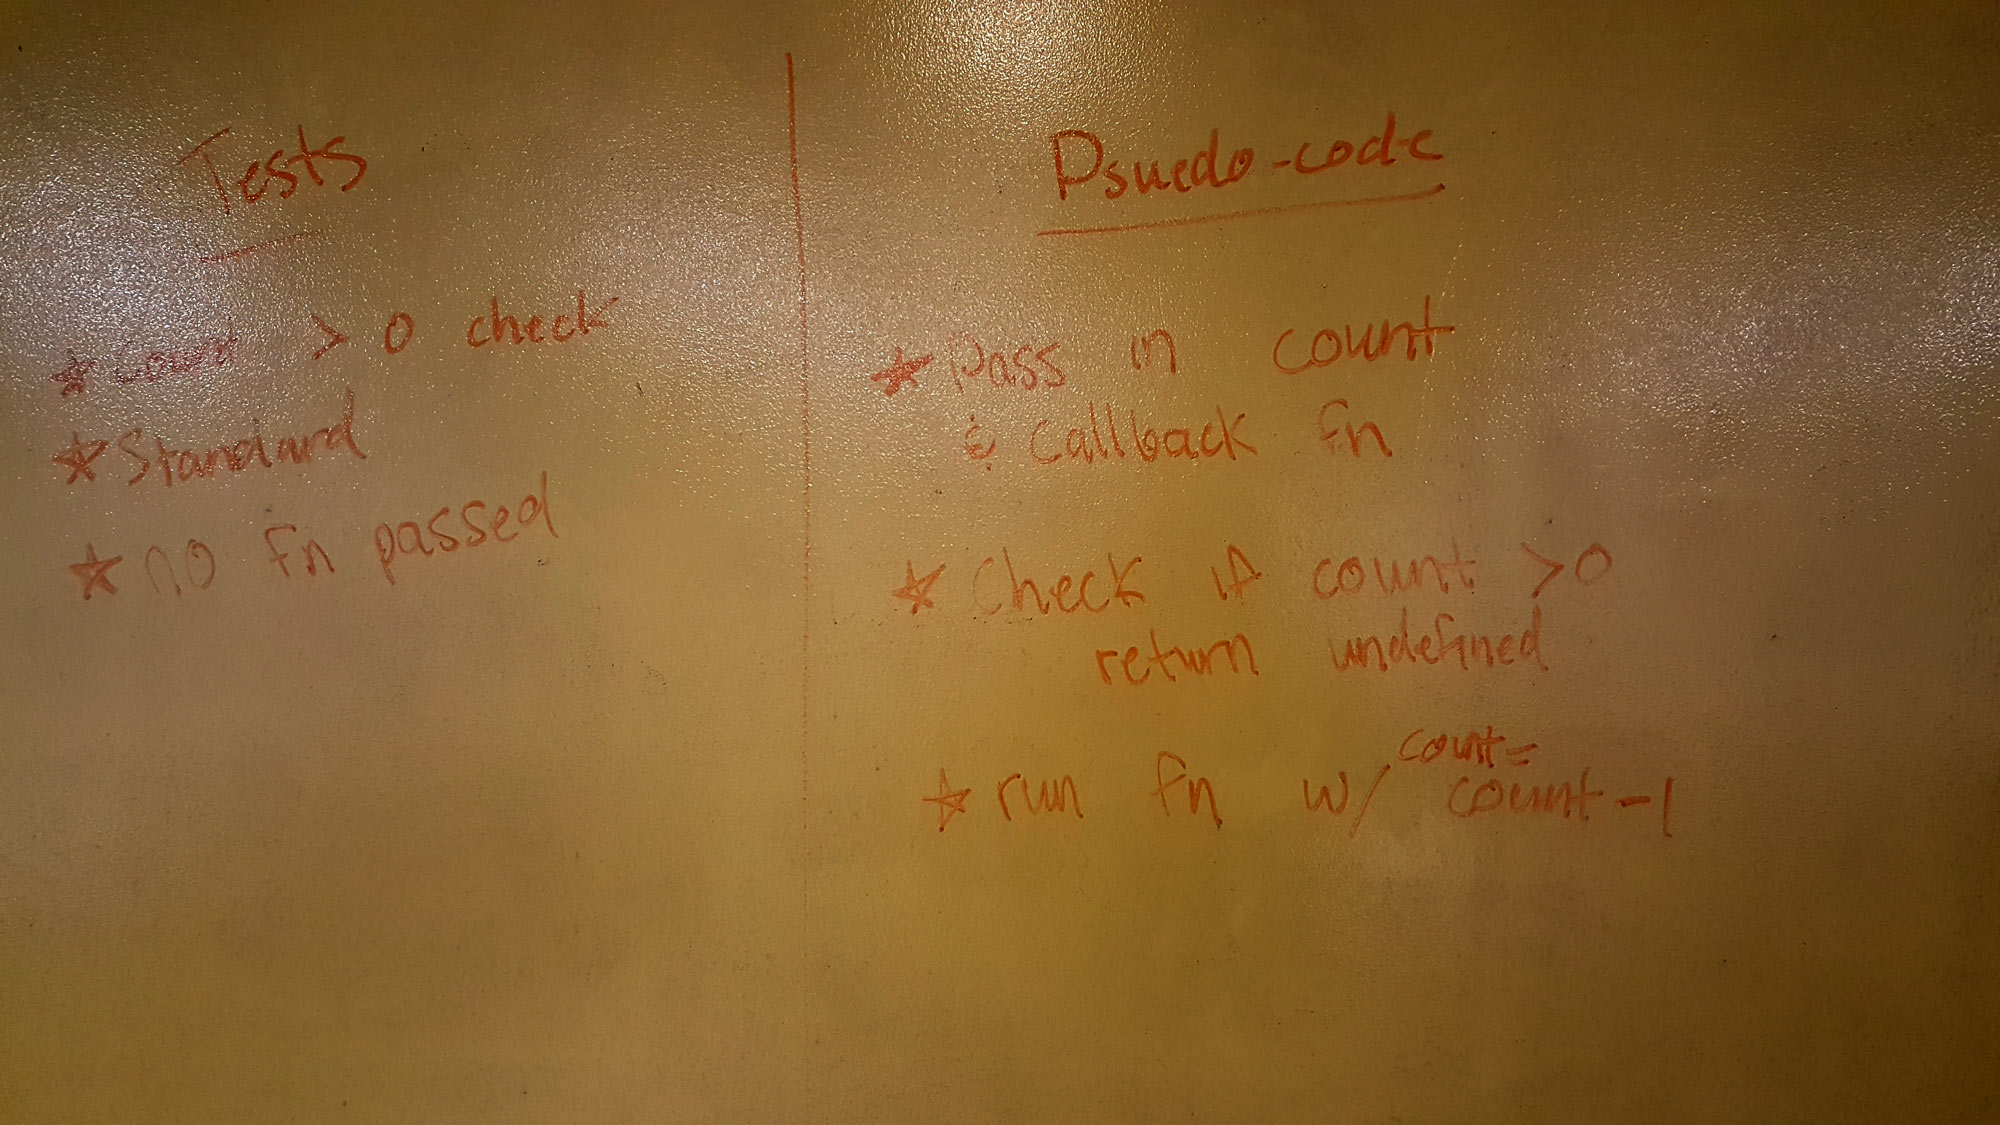 Tests
★ count > 0 check
★ Standard
★ no fn passed
Psuedo-code
★ Pass in count
& callback fn
★ Check if count >0
return undefined
count=
★ run fn w/ count-1